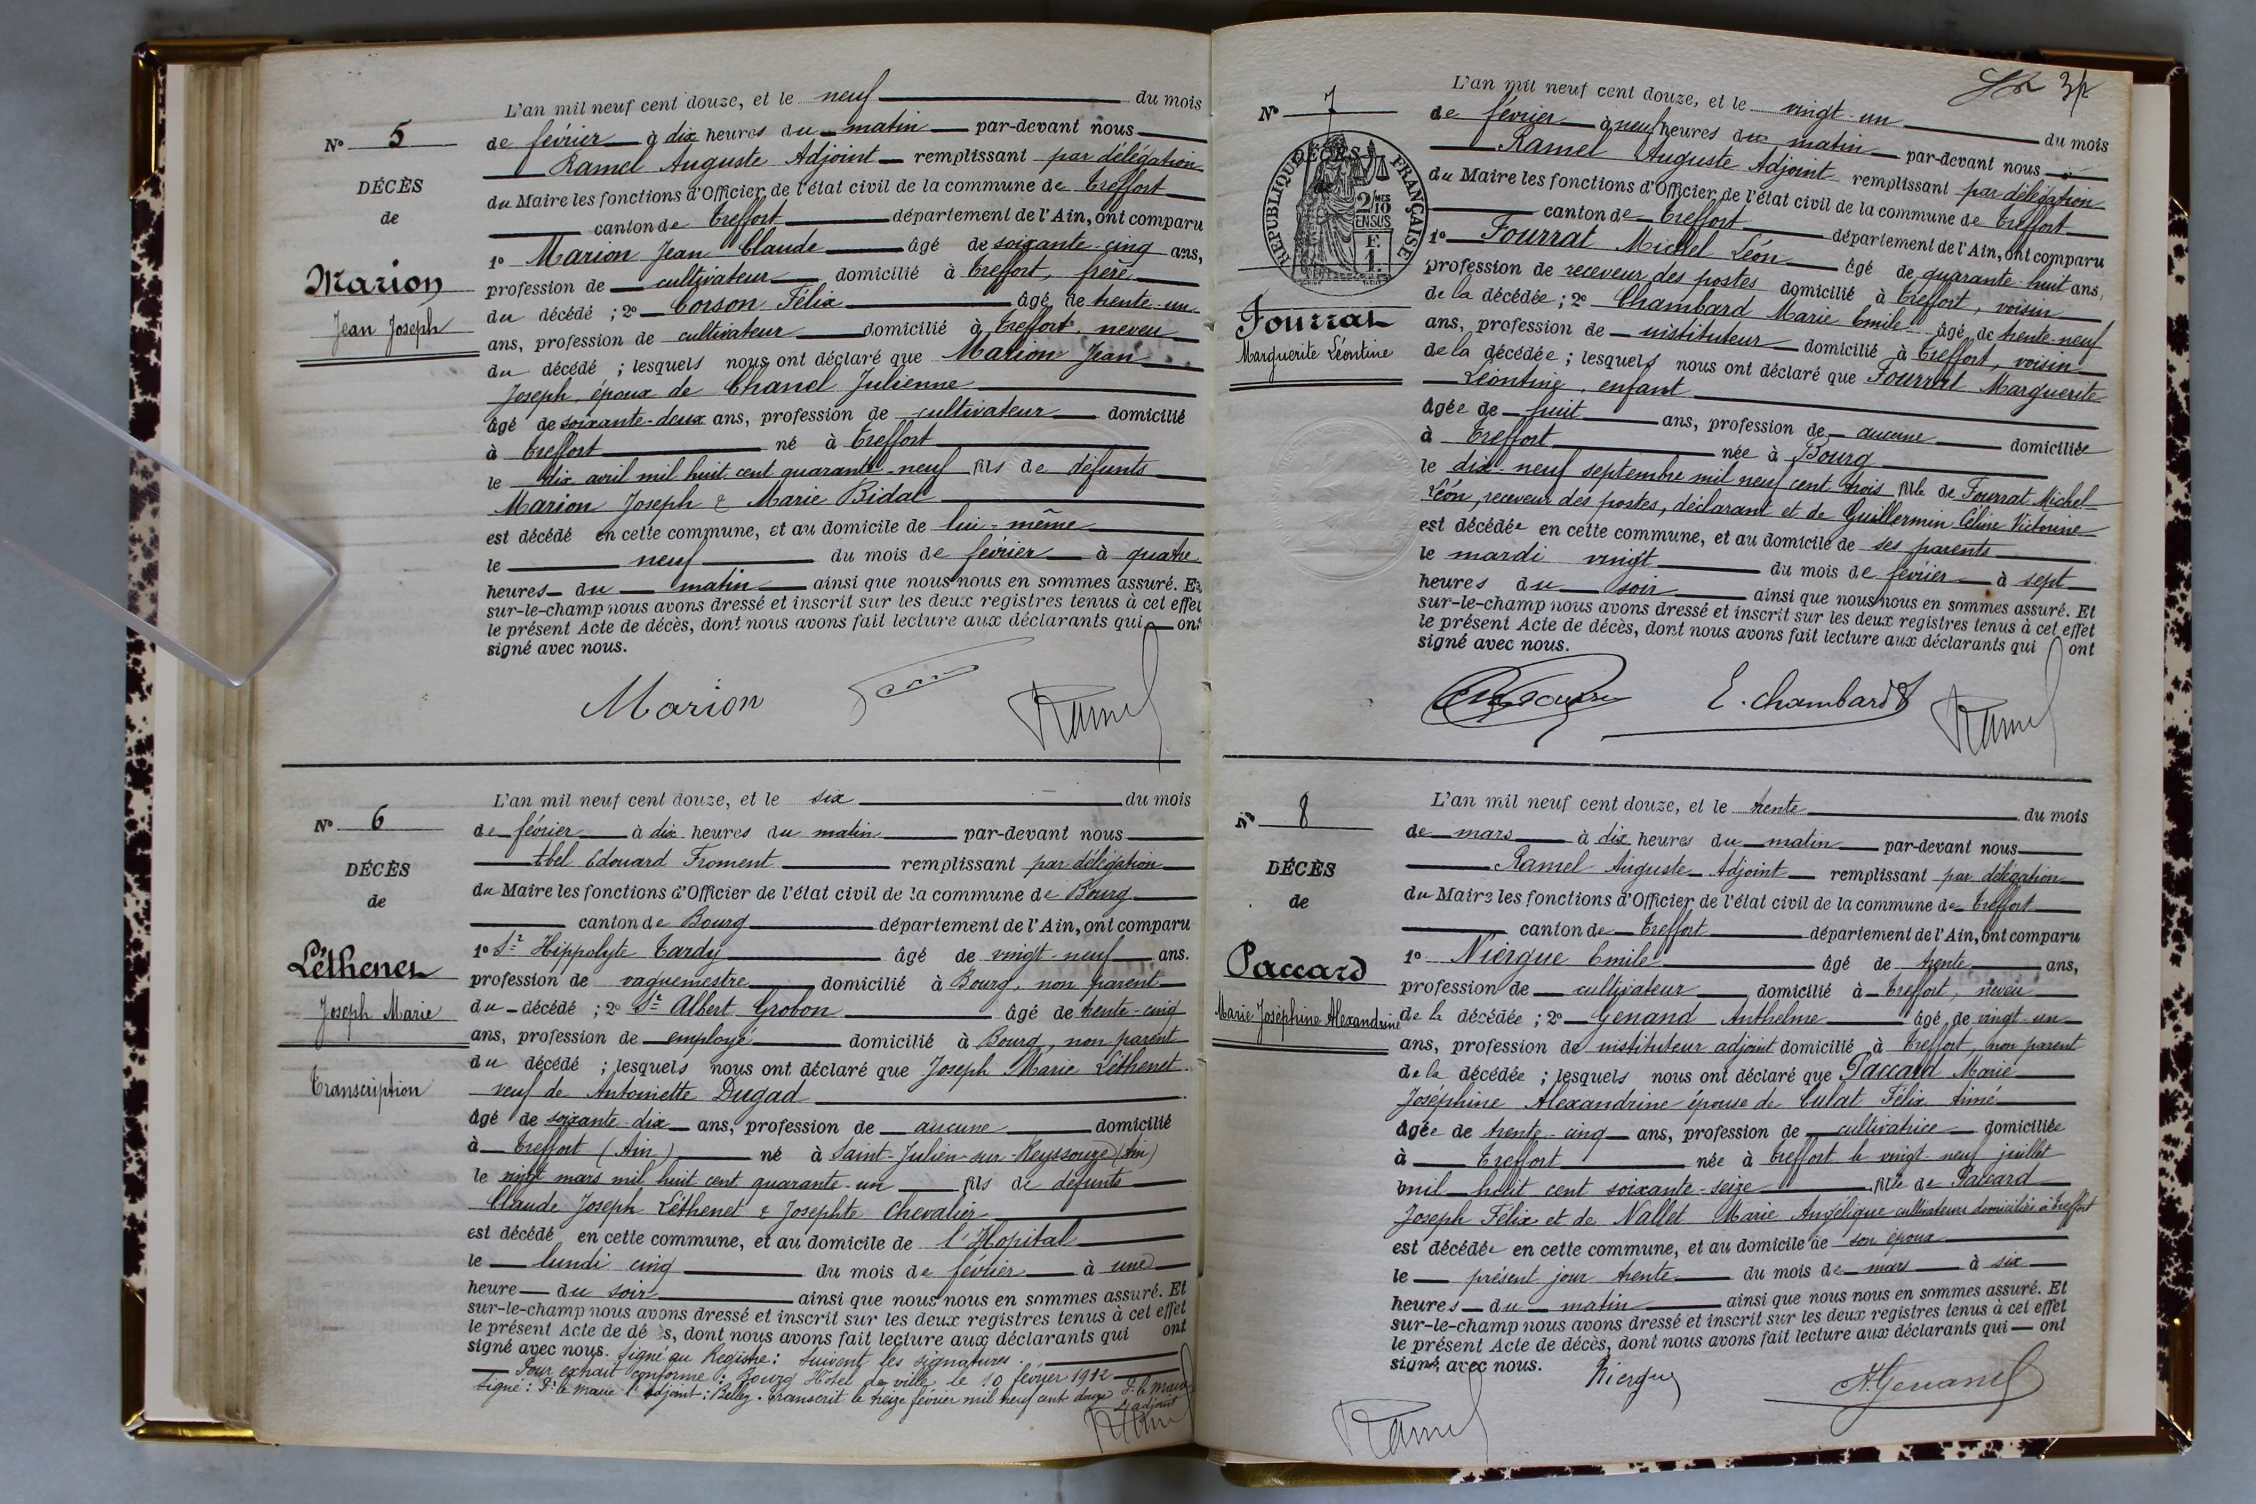 L'an mil neuf cent douze, et le neuf du mois
N° 5
de février à dix heures du matin par-devant nous
Ramel Auguste Adjoint remplissant par délégation
DÉCÈS
du Maire les fonctions d'Officier de l'état civil de la commune de Treffort
de
canton de Treffort département de l'Ain, ont comparu
1° Marion Jean Claude âgé de soixante-cinq ans,
Marion
profession de cultivateur domicilié à Treffort, frère
Jean Joseph
du décédé ; 2° Corson Félix âgé de trente-un
ans, profession de cultivateur domicilié à Treffort, neveu
du décédé ; lesquels nous ont déclaré que Marion Jean
Joseph, époux de Chanel Julienne
âgé de soixante-deux ans, profession de cultivateur domicilié
à Treffort né à Treffort
le dix avril mil huit cent quarante-neuf fils de défunts
Marion Joseph & Marie Bidal
est décédé en cette commune, et au domicile de lui-même
le neuf du mois de février à quatre
heures du matin ainsi que nous nous en sommes assuré. Et
sur-le-champ nous avons dressé et inscrit sur les deux registres tenus à cet effet
le présent Acte de décès, dont nous avons fait lecture aux déclarants qui ont
signé avec nous.
Marion
Ramel
L'an mil neuf cent douze, et le six du mois
N° 6
de février à dix heures du matin par-devant nous
Abel Edouard Froment remplissant par délégation
DÉCÈS
du Maire les fonctions d'Officier de l'état civil de la commune de Bourg
de
canton de Bourg département de l'Ain, ont comparu
1° Sr Hippolyte Tardy âgé de vingt-neuf ans.
Léthenet
profession de vaguemestre domicilié à Bourg, non parent
Joseph Marie
du décédé ; 2° Sr Albert Grobon âgé de trente-cinq
ans, profession de employé domicilié à Bourg, non parent
du décédé ; lesquels nous ont déclaré que Joseph Marie Léthenet
Transcription
veuf de Antoinette Dugad
âgé de soixante-dix ans, profession de aucune domicilié
à Treffort (Ain) né à Saint-Julien-sur-Reyssouze (Ain)
le vingt mars mil huit cent quarante-un fils de défunts
Claude Joseph Léthenet & Josephte Chevalier
est décédé en cette commune, et au domicile de l'Hopital
le lundi cinq du mois de février à une
heure du soir ainsi que nous nous en sommes assuré. Et
sur-le-champ nous avons dressé et inscrit sur les deux registres tenus à cet effet
le présent Acte de décès, dont nous avons fait lecture aux déclarants qui ont
signé avec nous. Signé au Registre : Suivent les signatures.
Pour extrait conforme : Bourg Hôtel de ville, le 10 février 1912
Signé : Pr le Maire l'adjoint : Belley. Transcrit le treize février mil neuf cent douze Pr le Maire
L'adjoint
Ramel
L'an mil neuf cent douze, et le vingt-un du mois
N° 7
de février à neuf heures du matin par-devant nous
Ramel Auguste Adjoint remplissant par délégation
DÉCÈS
de
RÉPUBLIQUE FRANÇAISE
2/10
EN SUS
F.
1.
du Maire les fonctions d'Officier de l'état civil de la commune de Treffort
canton de Treffort département de l'Ain, ont comparu
1° Fourrat Michel Léon âgé de quarante-huit ans,
profession de receveur des postes domicilié à Treffort, voisin
Fourrat
de la décédée ; 2° Chambard Marie Emile âgé de trente-neuf
Marguerite Léontine
ans, profession de instituteur domicilié à Treffort, voisin
de la décédée ; lesquels nous ont déclaré que Fourrat Marguerite
Léontine, enfant
âgée de huit ans, profession de aucune domiciliée
à Treffort née à Bourg
le dix-neuf septembre mil neuf cent trois fille de Fourrat Michel
Léon, receveur des postes, déclarant et de Guillermin Céline Victorine
est décédée en cette commune, et au domicile de ses parents
le mardi vingt du mois de février à sept
heures du soir ainsi que nous nous en sommes assuré. Et
sur-le-champ nous avons dressé et inscrit sur les deux registres tenus à cet effet
le présent Acte de décès, dont nous avons fait lecture aux déclarants qui ont
signé avec nous.
E. Chambard
Ramel
L'an mil neuf cent douze, et le trente du mois
N° 8
de mars à dix heures du matin par-devant nous
Ramel Auguste Adjoint remplissant par délégation
DÉCÈS
du Maire les fonctions d'Officier de l'état civil de la commune de Treffort
de
canton de Treffort département de l'Ain, ont comparu
1° Niergue Emile âgé de trente ans,
Paccard
profession de cultivateur domicilié à Treffort, neveu
Marie Joséphine Alexandrine
de la décédée ; 2° Genand Anthelme âgé de vingt-un
ans, profession de instituteur adjoint domicilié à Treffort, non parent
de la décédée ; lesquels nous ont déclaré que Paccard Marie
Joséphine Alexandrine épouse de Culat Félix Aimé
âgée de trente-cinq ans, profession de cultivatrice domiciliée
à Treffort née à Treffort le vingt neuf juillet
mil huit cent soixante-seize fille de Paccard
Joseph Félix et de Nallet Marie Angélique cultivateurs domiciliés à Treffort
est décédée en cette commune, et au domicile de son époux
le présent jour trente du mois de mars à six
heures du matin ainsi que nous nous en sommes assuré. Et
sur-le-champ nous avons dressé et inscrit sur les deux registres tenus à cet effet
le présent Acte de décès, dont nous avons fait lecture aux déclarants qui ont
signé avec nous.
Niergue
A. Genand
Ramel